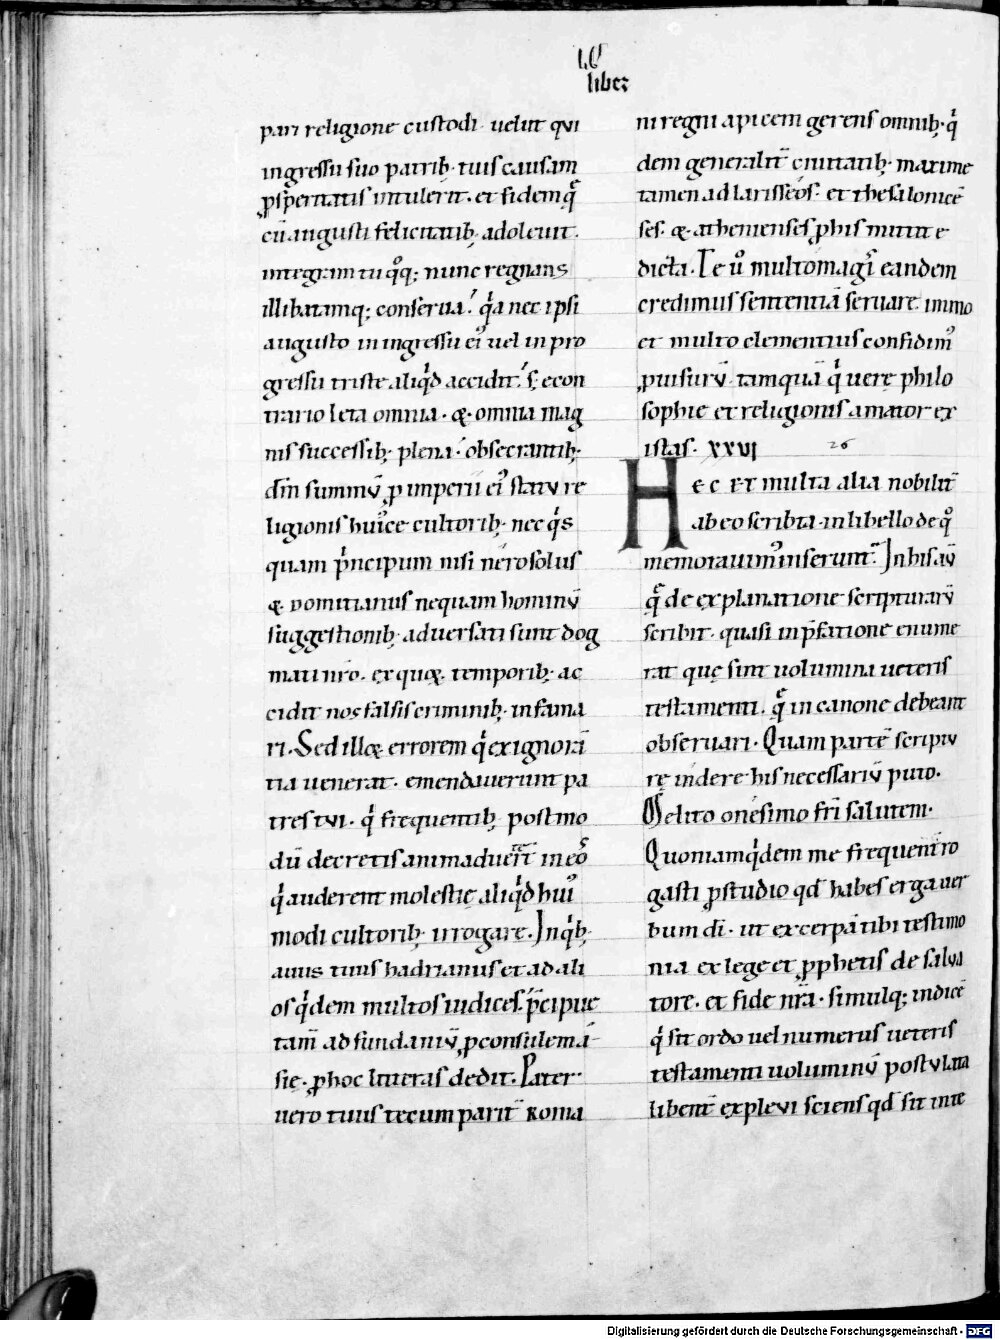 liber
pari religione custodi· uelut qui
ingressu suo patrib; tuis causam
ꝓsperitatis intulerit· et fidem q̄
cū augusti felicitatib; adoleuit·
integram tu qͦq; nunc regnans
illibatamq; conserua· qͥa nec ipsi
augusto in ingressu eiꝰ uel in pro
gressu triste aliqͥd accidit· s; econ
trario leta omnia· & omnia mag
nis successib; plena· obsecrantib;
dm̄ summū ꝓ imperii eiꝰ statu re
ligionis huiꝰce cultorib; nec qͥs
quam pͥncipum nisi nero solus
& domitianus nequam hominū
suggestionib; aduersati sunt dog
mati nr̄o· ex quoꝝ temporib; ac
cidit nos falsis criminib; infama
ri· Sed illoꝝ errorem qͥ ex ignoran̄
tia uenerat· emendauerunt pa
tres tui· qͥ frequentib; postmo
dū decretis animaduert̄ in eos
qͥ auderent molestię aliqͥd huiꝰ
modi cultorib; irrogare· In qͥb;
auus tuus hadrianus et ad ali
os qͥdem multos iudices· p̄cipue
tam̄ ad fundaniū ꝓconsulem a
się· ꝓ hoc litteras dedit· Pater
uero tuus tecum parit̄ roma
ni regni apicem gerens omnib; qͥ
dem generalit̄ ciuitatib; maxime
tamen ad larisseos· et thesalonicē
ses· & athenienses ꝓ his mittit e
dicta· Te ū multomagis eandem
credimus sententiā seruare immo
et multo clementius confidimꝰ
ꝓuisurū· tamquā qͥ uerę philo
sophię et religionis amator ex
istas· XXVI 26
Hec et multa alia nobilit̄
ab eo scribta· in libello de qͦ
memorauimꝰ inserunt̄· In his aū
q̄ de explanatione scripturarū
scribit· quasi in p̄fatione enume
rat quę sint uolumina ueteris
testamenti· q̄ in canone debeant
obseruari· Quam partē scriptu
rę indere his necessariū puto·
Melito onesimo fr̄i salutem·
Quoniam qͥdem me frequent̄ ro
gasti ꝓ studio qd̄ habes erga uer
bum di· ut excerpā tibi testimo
nia ex lege et ꝓphetis de salua
tore· et fide nr̄a· simulq; indicē
qͥ sit ordo uel numerus ueteris
testamenti uoluminū postulata
libent̄ expleui sciens qd̄ sit inte
Digitalisierung gefördert durch die Deutsche Forschungsgemeinschaft - DFG